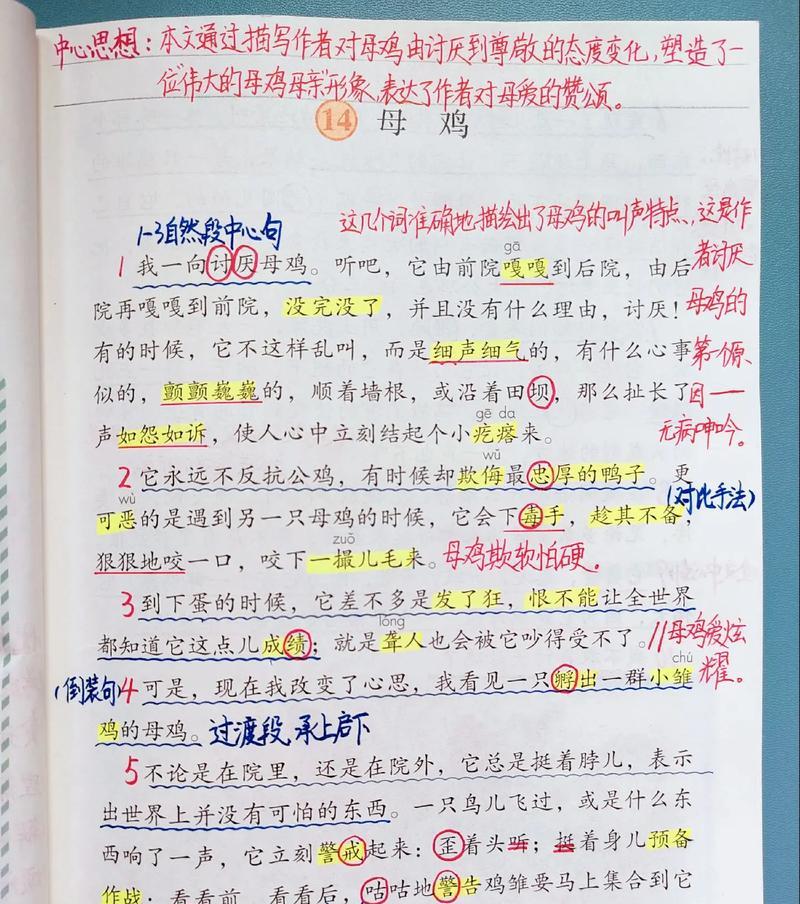 中心思想：本文通过描写作者对母鸡由讨厌到尊敬的态度变化，塑造了一
位"伟大的母鸡母亲"形象，表达了作者对母爱的赞颂。
14 母鸡
1-3自然段中心句
这几个词准确地描绘出了母鸡的叫声特点，这是作
者讨厌
母鸡的
第一个原
因——
无病呻吟。
gā
1 我一向讨厌母鸡。听吧，它由前院嘎嘎到后院，由后
院再嘎嘎到前院，没完没了，并且没有什么理由，讨厌！
有的时候，它不这样乱叫，而是细声细气的，有什么心事
似的，颤颤巍巍的，顺着墙根，或沿着田坝，那么扯长了
gē da
声如怨如诉，使人心中立刻结起个小疙瘩来。
wǔ
2 它永远不反抗公鸡，有时候却欺侮最忠厚的鸭子。更
（对比手法）
wù
可恶的是遇到另一只母鸡的时候，它会下毒手，趁其不备，
zuǒ
狠狠地咬一口，咬下一撮儿毛来。
母鸡欺软怕硬。
3 到下蛋的时候，它差不多是发了狂，恨不能让全世界
lóng
都知道它这点儿成绩；就是聋人也会被它吵得受不了。
//母鸡爱炫
耀。
（倒装句）
chú
4 可是，现在我改变了心思，我看见一只孵出一群小雏
鸡的母鸡。
过渡段，承上启下
5 不论是在院里，还是在院外，它总是挺着脖儿，表示
出世界上并没有可怕的东西。一只鸟儿飞过，或是什么东
西响了一声，它立刻警戒起来：歪着头听；挺着身儿预备
作战；看看前，看看后，咕咕地警告鸡雏要马上集合到它